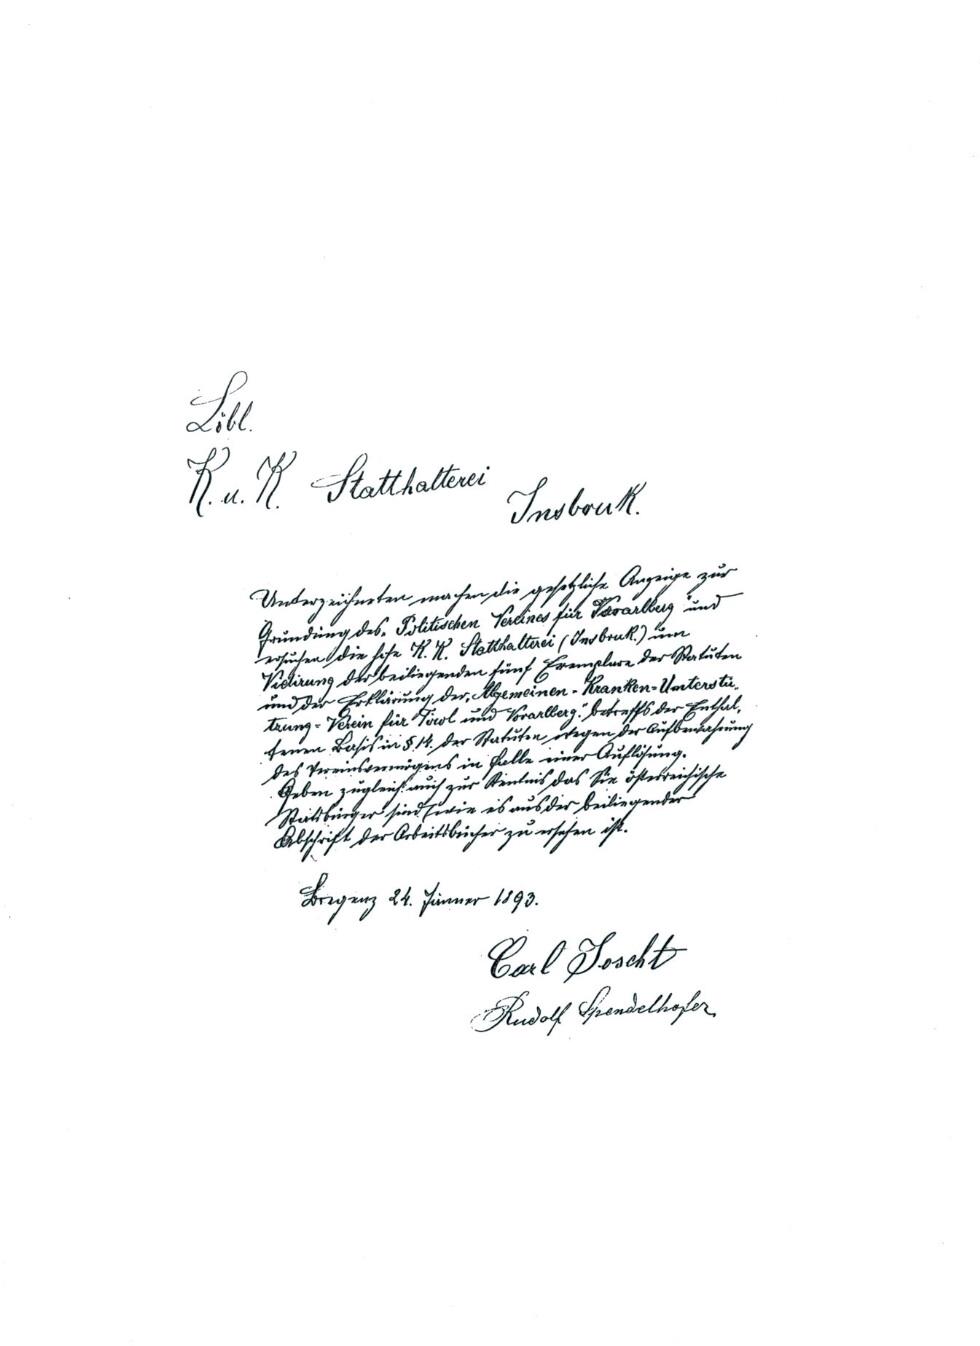 Löbl.
K. u. K. Statthalterei
Insbruk.
Unterzeichneten machen die gesetzliche Anzeige zur
Gründung des „Politischen Vereines für Vorarlberg" und
ersuchen die hohe K. K. Statthalterei (Insbruk.) um
Vidirung der beiliegenden fünf Exemplare der Statuten
und der Erklärung der „Algemeinen-Kranken-Unterstü-
tzung-Verein für Tirol und Vorarlberg." betreffs der Enthal-
tenen Basis in §. 14. der Statuten, wegen der Aufbewahrung
des Vereinsvermögens in Falle einer Auflösung.
Geben zugleich auch zur Kentnis das Sie österreichische
Statsbürger sind, wie es aus der beiliegender
Abschrift der Arbeitsbücher zu ersehen ist.
Bregenz 24. Jänner 1893.
Carl Joscht
Rudolf Spendelhofer